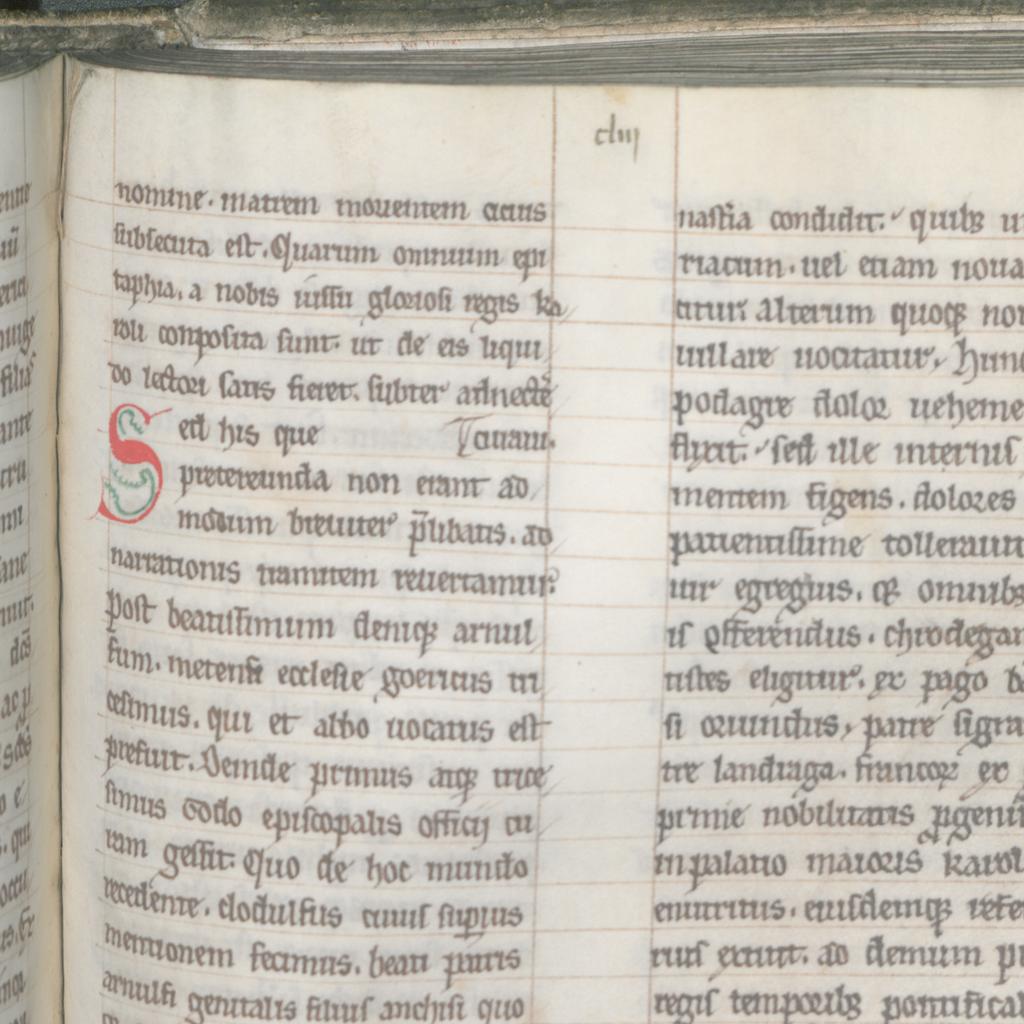 cliij
nomine. matrem mouentem actus
subsecuta est. Quarum omnium epi
taphia, a nobis iussu gloriosi regis ka
roli conposita sunt. ut de eis liqui
do lectori satis fieret. subter adnectē
Sed his que tauani.
pretereunda non erant ad
modum breuiter p̄libatis. ad
narrationis tramitem reuertamur.
Post beatissimum deniqꝫ arnul
fum. metensis ecclesie goericus tri
cesimus. qui et abbo uocatus est
prefuit. Deinde primus atqꝫ trice
simus godo episcopalis officij cu
ram gessit. Quo de hoc mundo
recedente. clodulfus cuius supius
mentionem fecimus. beati patris
arnulfi genitalis filius anchisi quo
nastia condidit. quibꝫ
uel etiam noua
citur. Alterum quoqꝫ
uillare uocitatur, hunc
podagre dolor ueheme
flixit. sed ille internis
mentem figens. dolores
patientissime tollerauit
uir egregius. omnibꝫ
is offerendus. chrodegan
tistes eligitur. ex pago
si oriundus, patre sigra
tre landraga. francoꝝ ex
primie nobilitatis ꝓgenit
in palatio maioris karol
enutritus. eiusdemqꝫ refe
rius extitit. ac demum
regis temporibꝫ pontifical